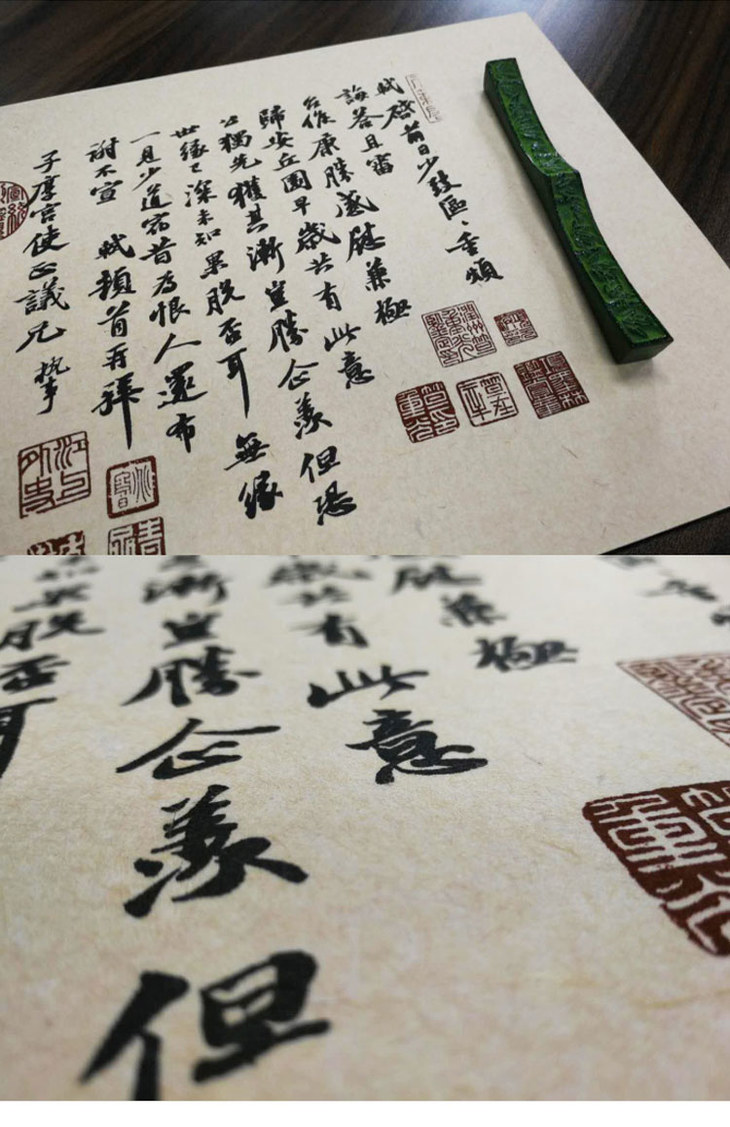 軾啓前日少致區〻重煩
誨答且審
台候康勝感慰兼極
歸安丘園早歲共有此意
公獨先獲其漸豈勝企羨但恐
世緣已深未知果脫否耳無緣
一見少道宿昔為恨人還布
謝不宣 軾頓首再拜
子厚宮使正議兄 執事
江上外史
慰兼極
歲共有此意
漸豈勝企羨但
果脫否耳